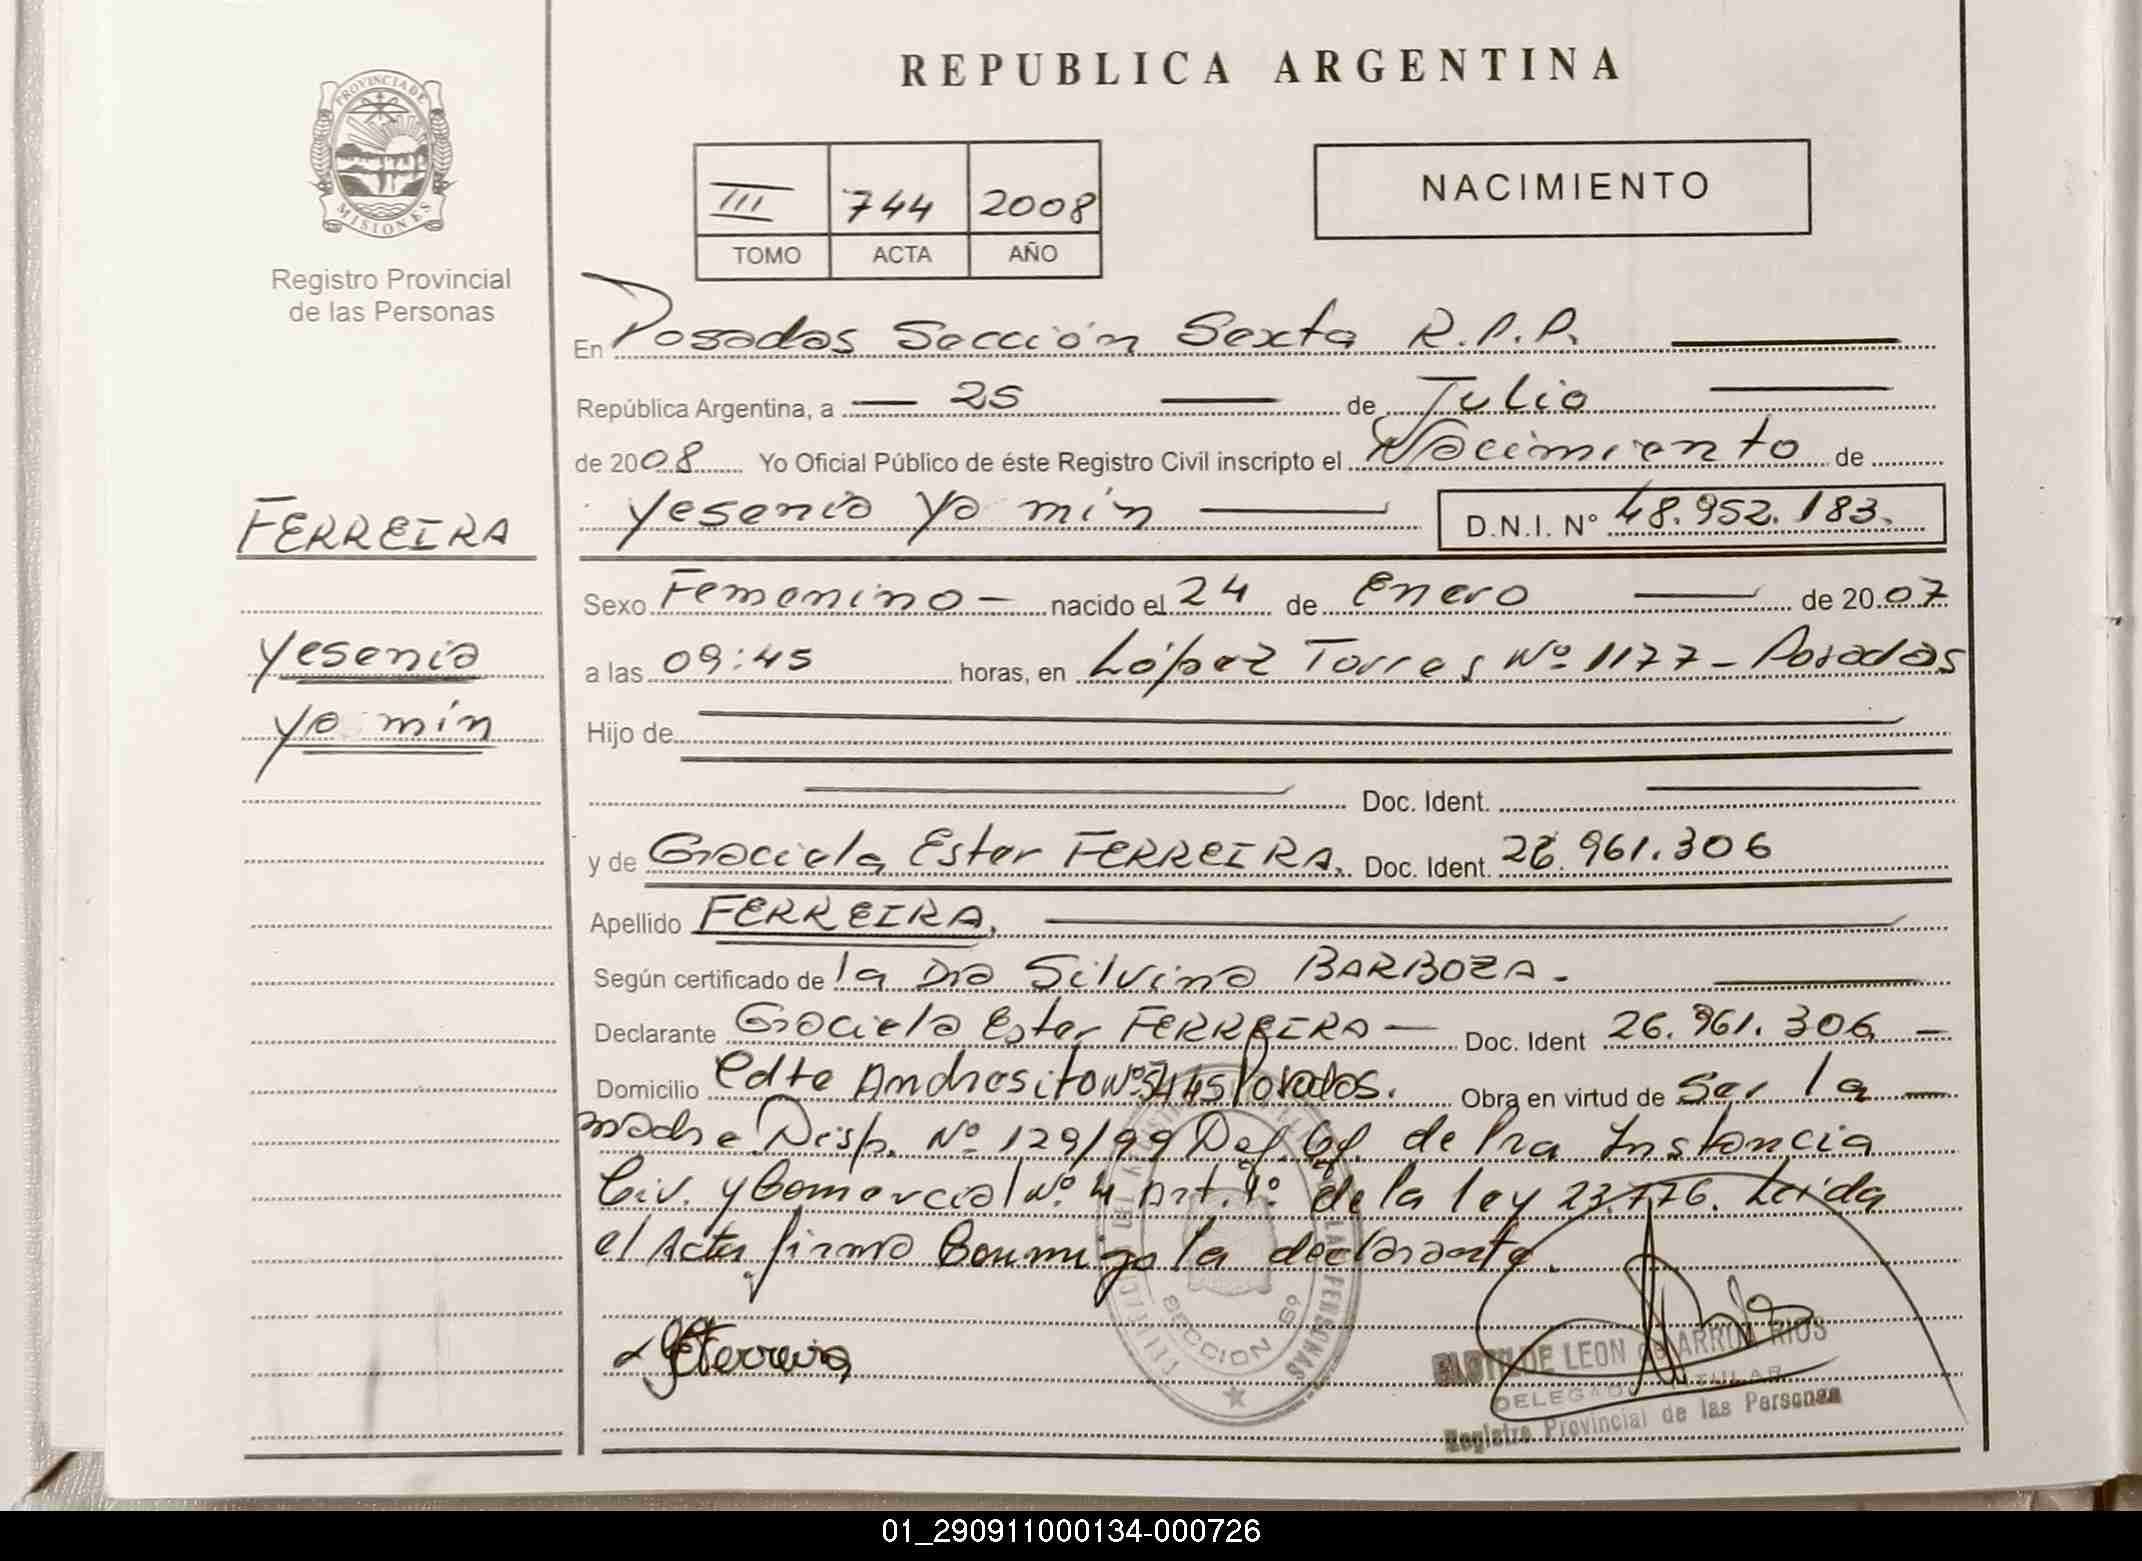 REPUBLICA ARGENTINA
PROVINCIA DE
MISIONES
Registro Provincial
de las Personas
III 744 2008
TOMO ACTA AÑO
NACIMIENTO
En Posadas Sección Sexta R.P.P.
República Argentina, a 25 de Julio
de 2008 Yo Oficial Público de éste Registro Civil inscripto el Nacimiento de
Yesenia Ya min D.N.I. N° 48.952.183.
FERREIRA
Yesenia
Ya min
Sexo Femenino nacido el 24 de Enero de 2007
a las 09:45 horas, en López Torres Nº 1177 - Posadas
Hijo de
Doc. Ident.
y de Graciela Ester FERREIRA. Doc. Ident. 26.961.306
Apellido FERREIRA.
Según certificado de la Dra Silvina BARBOZA.
Declarante Graciela Ester FERREIRA Doc. Ident 26.961.306
Domicilio Cdte Andresito Nº 5445 Posadas. Obra en virtud de Ser la
madre Disp. Nº 129/99 Def. Of. de 1ra Instancia
Civ. y Comercial Nº 4 Art. 1º de la ley 23.776. Leída
el Acta firma Conmigo la declarante.
GEFerreira
SECCION 6º
LAS PERSONAS
CLOTILDE LEON de ARRUA RIOS
DELEGADO TITULAR
Registro Provincial de las Personas
01_290911000134-000726